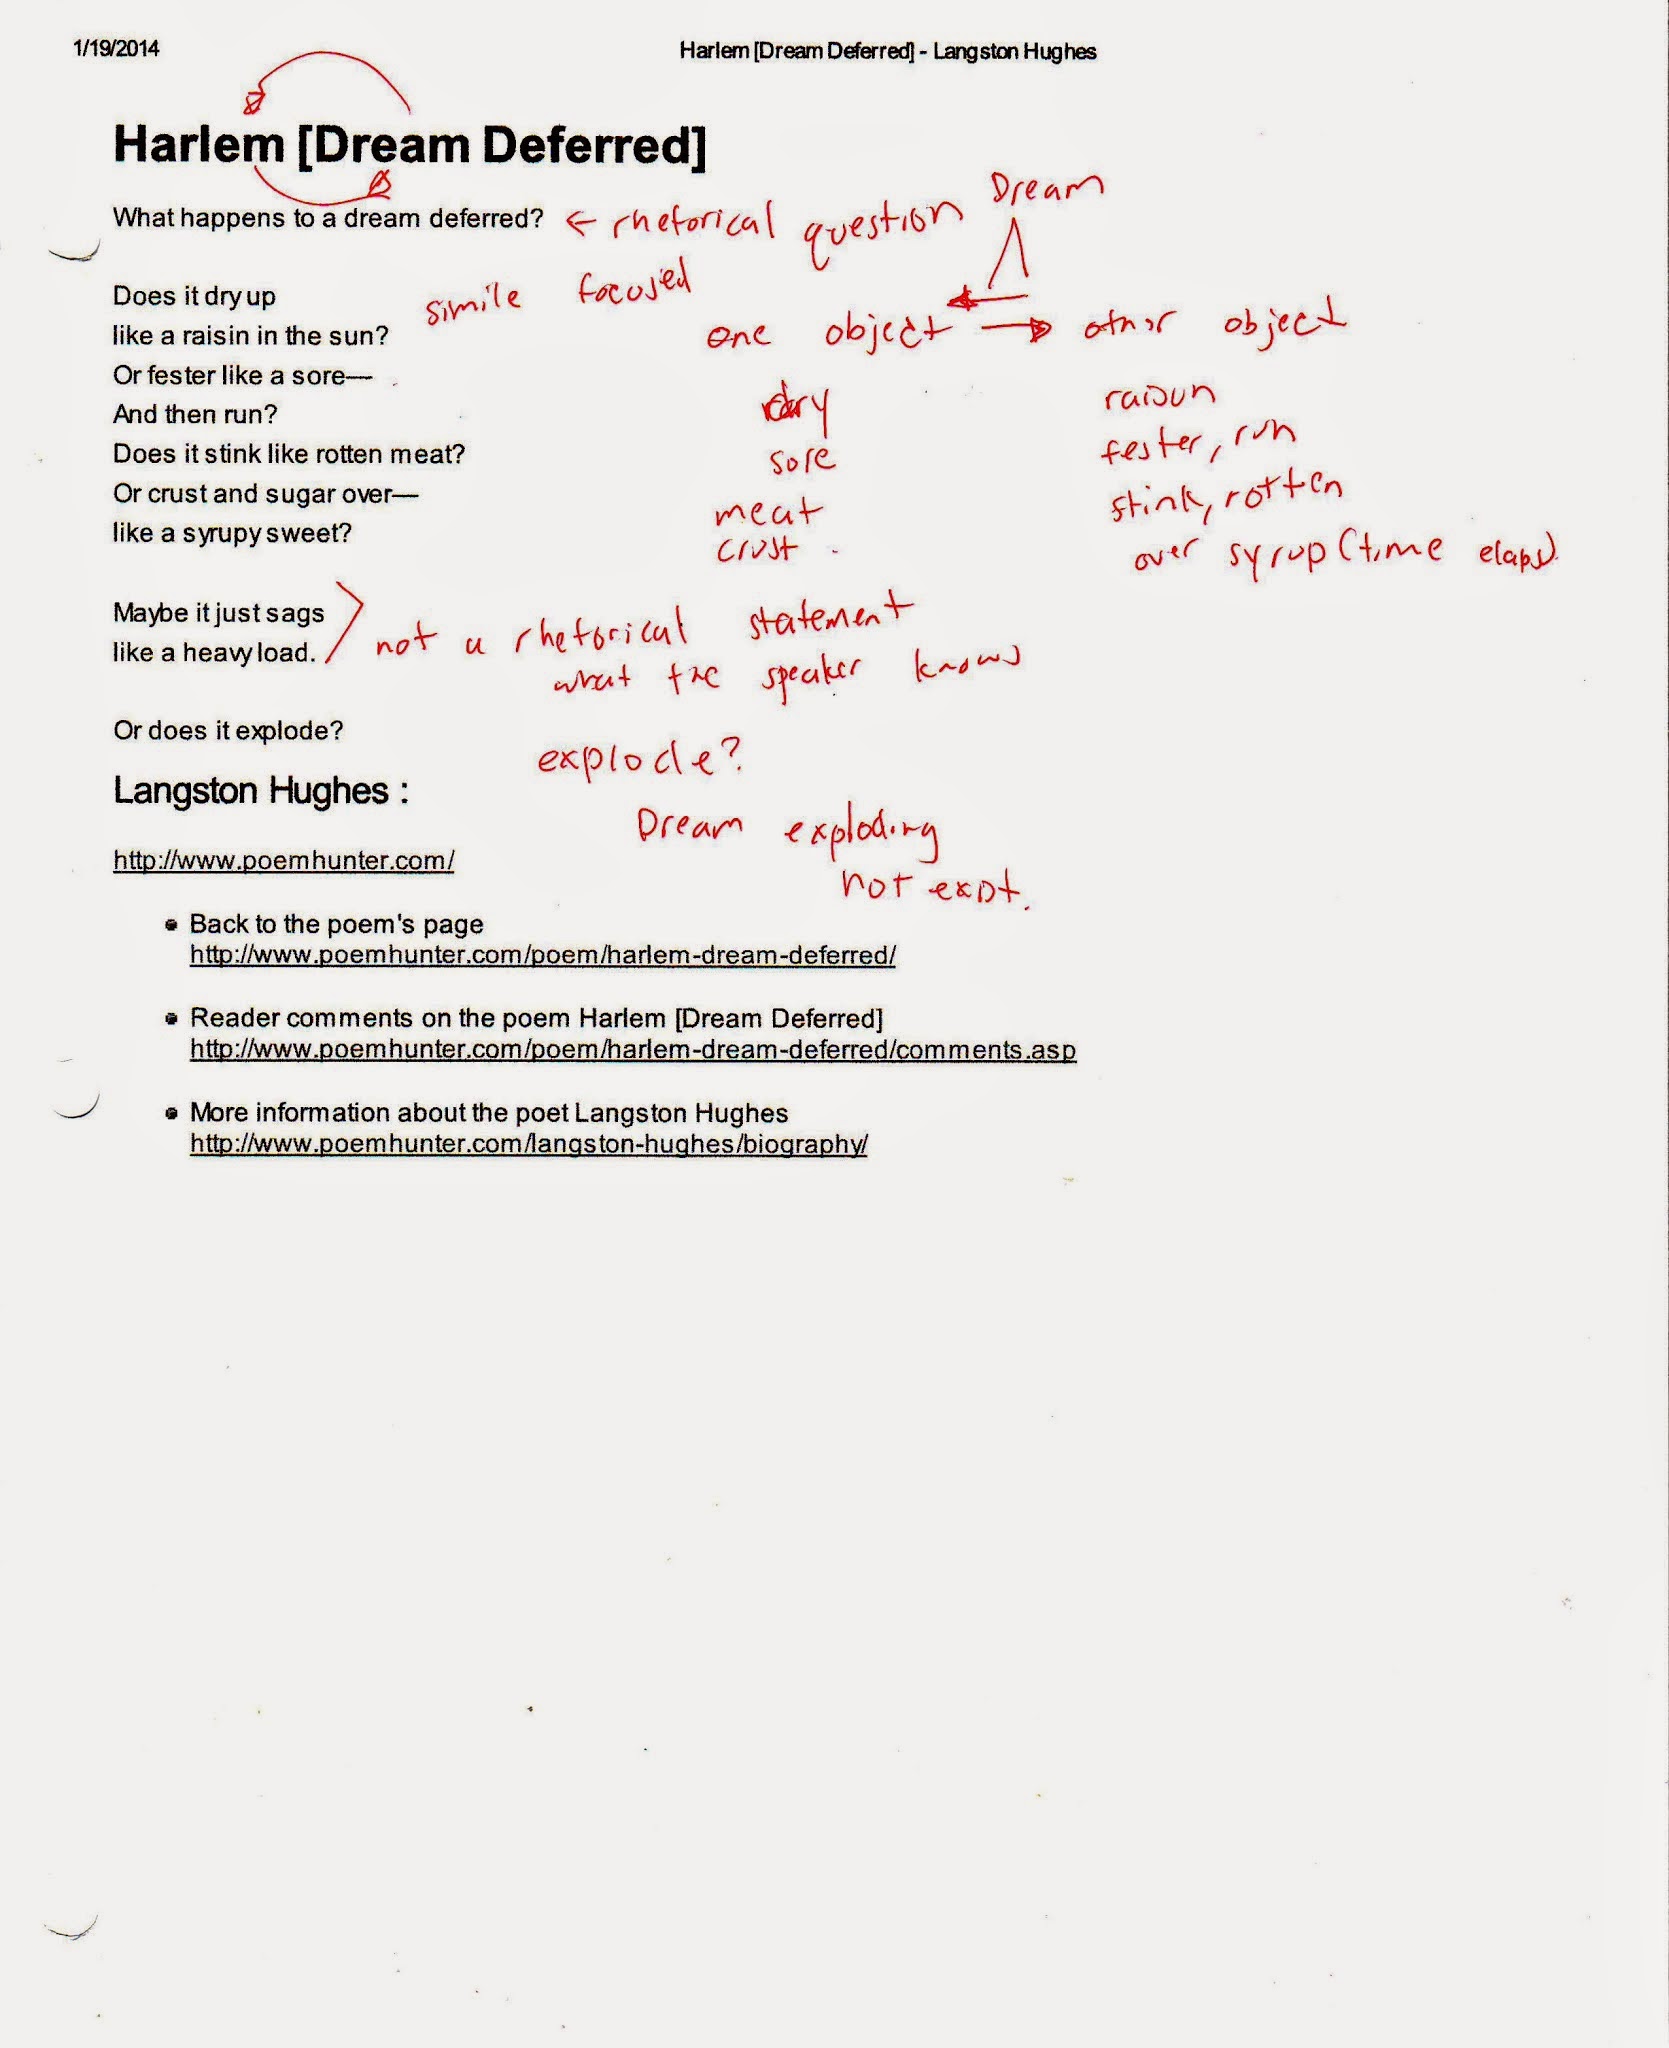 1/19/2014 Harlem [Dream Deferred] - Langston Hughes
Harlem [Dream Deferred]
What happens to a dream deferred? ← rhetorical question Dream
Does it dry up
like a raisin in the sun?
simile focused
one object → other object
Or fester like a sore—
And then run?
dry raisun
Does it stink like rotten meat?
sore fester, run
Or crust and sugar over—
meat stink, rotten
like a syrupy sweet?
crust over syrup (time elaps)
Maybe it just sags
like a heavy load.
not a rhetorical statement
what the speaker knows
Or does it explode?
explode?
Langston Hughes :
Dream exploding
not
http://www.poemhunter.com/
Back to the poem's page
http://www.poemhunter.com/poem/harlem-dream-deferred/
Reader comments on the poem Harlem [Dream Deferred]
http://www.poemhunter.com/poem/harlem-dream-deferred/comments.asp
More information about the poet Langston Hughes
http://www.poemhunter.com/langston-hughes/biography/